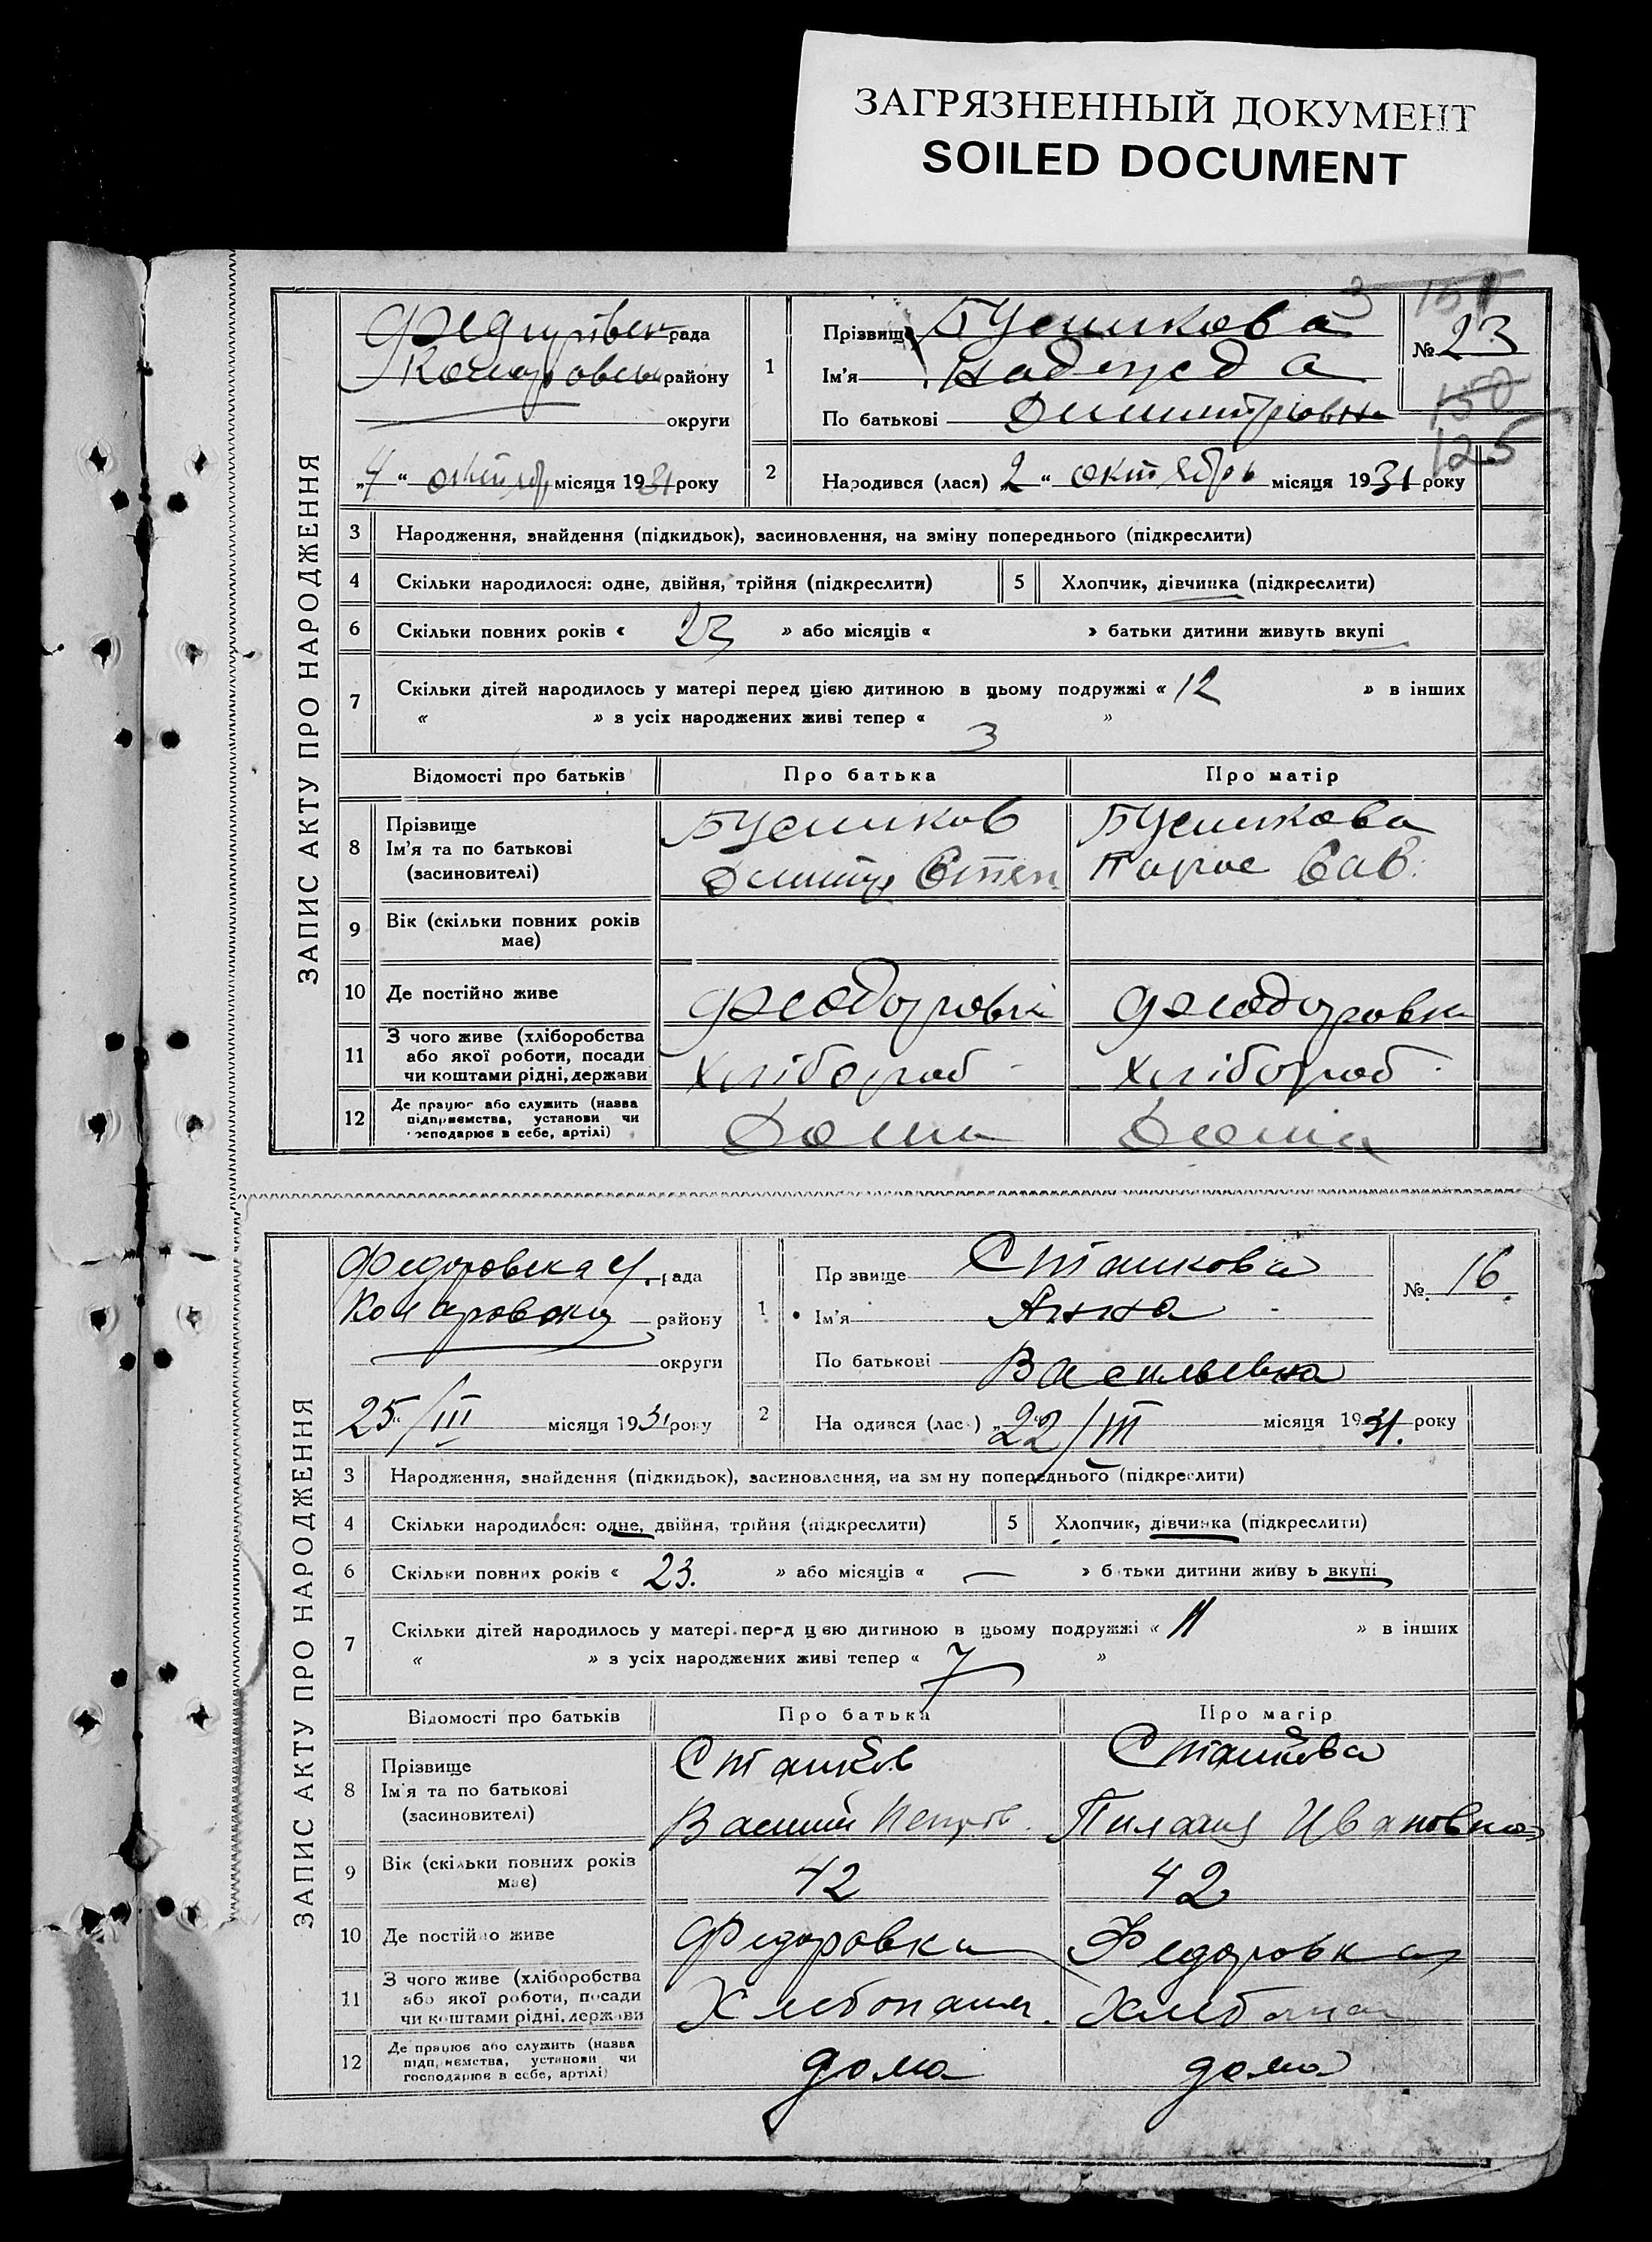 ЗАГРЯЗНЕННЫЙ ДОКУМЕНТ
SOILED DOCUMENT
ЗАПИС АКТУ ПРО НАРОДЖЕННЯ
рада
району
округи
„4“ октября місяця 1931 року
1
Прізвище
Ім'я Надежда
По батькові Дмитровна
№ 23
150
125
2
Народився (лася) „2“ октябрь місяця 1931 року
3 Народження, знайдення (підкидьок), засиновлення, на зміну попереднього (підкреслити)
4 Скільки народилося: одне, двійня, трійня (підкреслити) 5 Хлопчик, дівчинка (підкреслити)
6 Скільки повних років « 23 » або місяців « » батьки дитини живуть вкупі
7 Скільки дітей народилось у матері перед цією дитиною в цьому подружжі « 12 » в інших
« » з усіх народжених живі тепер « 3 »
Відомості про батьків Про батька Про матір
8 Прізвище
Ім'я та по батькові
(засиновителі)
9 Вік (скільки повних років має)
10 Де постійно живе Феодоровка Феодоровка
11 З чого живе (хліборобства або якої роботи, посади чи коштами рідні, держави Хлібороб Хлібороб
12 Де працює або служить (назва підприємства, установи чи господарює в себе, артілі) Дома Дома
ЗАПИС АКТУ ПРО НАРОДЖЕННЯ
Федоровская рада
району
округи
25/III місяця 1931 року
1
Прізвище Сташкова
Ім'я Анна
По батькові Васильевна
№ 16.
2
Народився (лася) „22/III місяця 1931. року
3 Народження, знайдення (підкидьок), засиновлення, на зміну попереднього (підкреслити)
4 Скільки народилося: одне, двійня, трійня (підкреслити) 5 Хлопчик, дівчинка (підкреслити)
6 Скільки повних років « 23. » або місяців « — » батьки дитини живуть вкупі
7 Скільки дітей народилось у матері перед цією дитиною в цьому подружжі « 11 » в інших
« » з усіх народжених живі тепер « 7 »
Відомості про батьків Про батька Про матір
8 Прізвище Сташков Сташкова
Ім'я та по батькові
(засиновителі) Василий Петров. Пилагия Ивановна
9 Вік (скільки повних років має) 42 42
10 Де постійно живе Федоровка Федоровка
11 З чого живе (хліборобства або якої роботи, посади чи коштами рідні, держави Хлебопаш.
12 Де працює або служить (назва підприємства, установи чи господарює в себе, артілі) дома дома